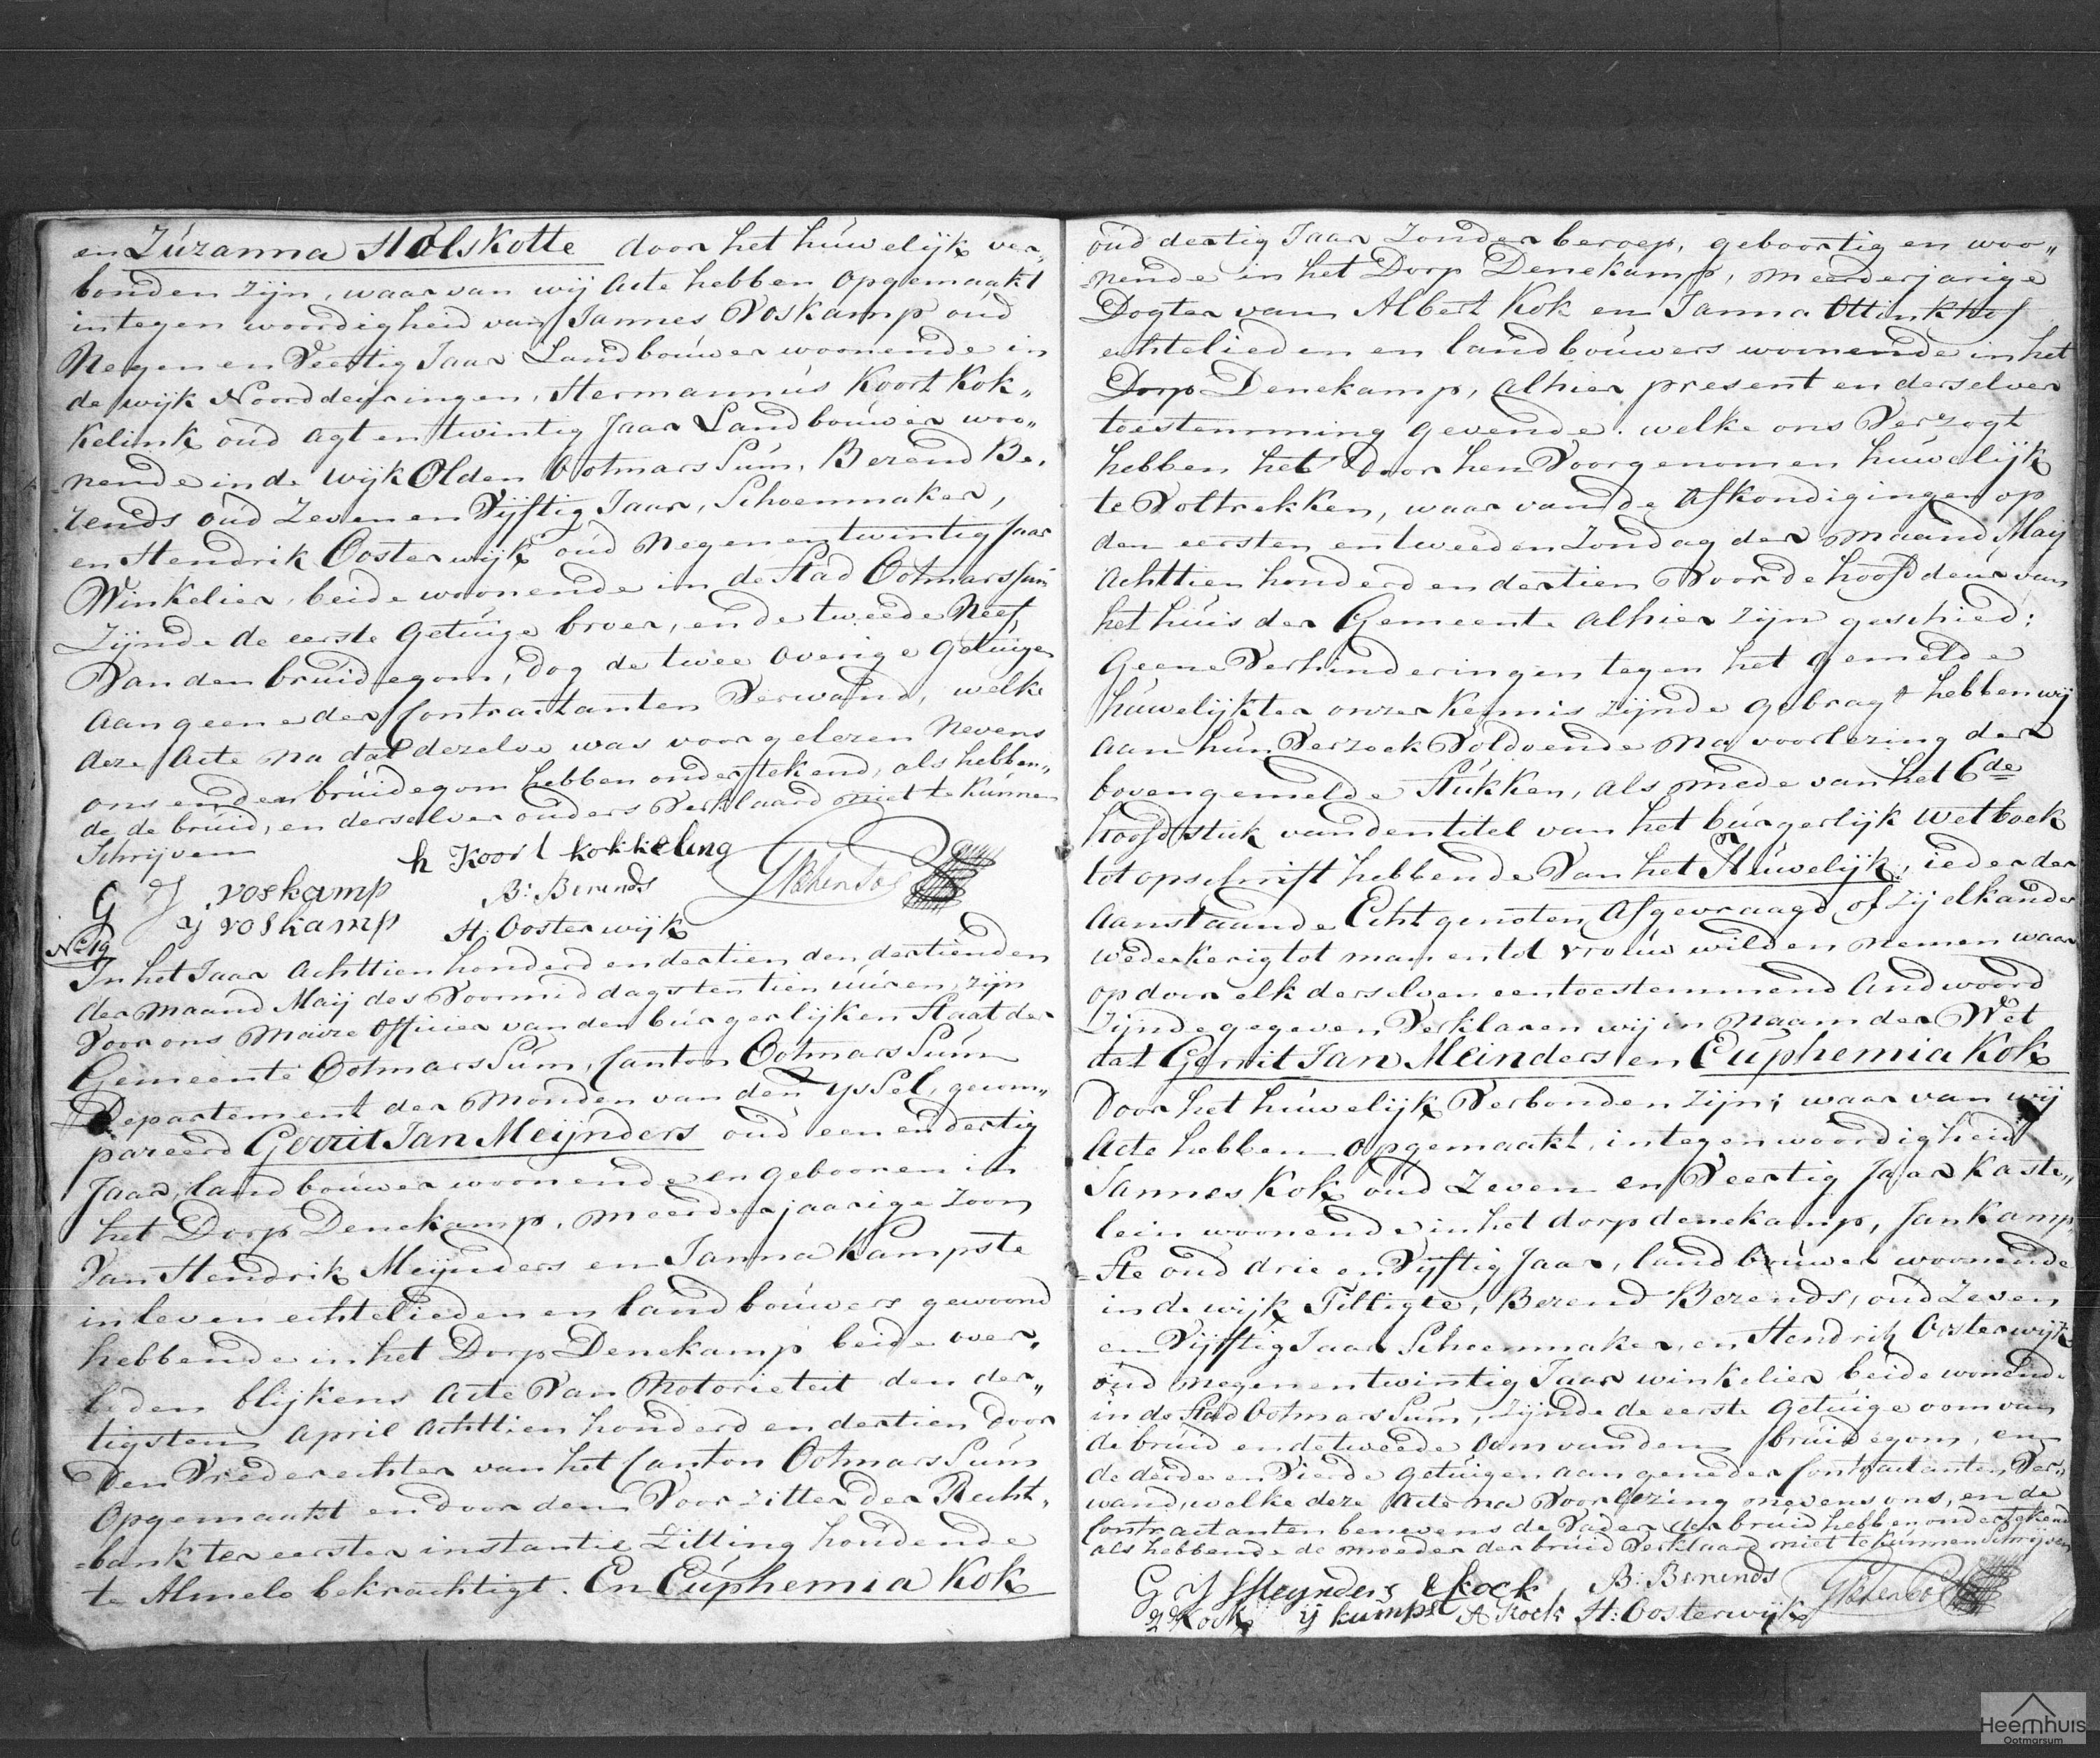 en Zúzanna Hólskotte door het húwelijk ver„
bonden zijn, waar van wij Acte hebben opgemaakt
in tegen woordigheid van Jannes Voskamp oúd
Negen en Veertig Jaar Landboúwer woonende in
de wijk Noorddeúringen, Hermannús Koort Kok„
Kelink oúd agt en twintig Jaar Landboúwer woo„
nende in de wijk Olden Ootmarssúm, Berend Be„
rends oúd Zeven en Vijftig Jaar, Schoenmaker,
en Hendrik Oosterwijk oúd negen en twintig Jaar
Winkelier, beide woonende in de Stad Ootmarssúm
zijnde de eerste getúige broer, en de tweede Neef
Van den brúidegom, dog de twee overige getúigen
aan geene der Contractanten Verwand, welke
deze Acte na dat dezelve was voorgelezen nevens
ons en den brúidegom hebben onderstekend, als hebben„
de de brúid, en derselver ouders Verklaard niet te kúnnen
Schrijven
h Koort kokkeling
G J voskamp B: Berends
J voskamp H: Oosterwijk
No 19
In het Jaar Achttien honderd en dertien den dertienden
der maand Maij des Voormiddags ten tien úúren, zijn
Voor ons Maire Officier van den búrgerlijken Staat der
Gemeente Ootmarssúm, Canton Ootmarssúm
Departement der Monden van den Yssel, gecom„
pareerd Gerrit Jan Meijnders oúd een en dertig
Jaar, landboúwer woonende en gebooren in
het Dorp Denekamp, meerderjaarige zoon
Van Hendrik Meijnders en Janna Kampste
in leven echtelieden en landboúwers gewoond
hebbende in het Dorp Denekamp beide over„
leden blijkens Acte Van Notorieteit den der„
tigsten April Achttien honderd en dertien door
den Vrederechter van het Canton Ootmarssúm
Opgemaakt en door den Voorzitter der Recht„
bank ter eerster instantie Zitting hoúdende
te Almelo bekrachtigt. En Eúphemia Kok
oúd dertig Jaar zonder beroep, geboortig en woo„
nende in het Dorp Denekamp, meerderjarige
Dogter van Albert Kok en Janna Ottinkhof
echtelieden en landboúwers woonende in het
Dorp Denekamp, alhier present en derselver
toestemming gevende. welke ons Verzogt
hebben het door hen Voorgenomen húwelijk
te Voltrekken, waar van de Afkondigingen op
den eersten en tweeden Zondag der maand Maij
Achttien honderd en dertien Voor de hoofddeúr van
het húis der Gemeente alhier zijn geschied;
Geene Verhinderingen tegen het gemelde
húwelijk ter onzer Kennis zijnde gebragt hebben wij
aan hún Verzoek Voldoende na voorlezing der
bovengemelde Stúkken, als mede van het 6de
hoofdstúk van den titel van het búrgerlijk wetboek
tot opschrift hebbende Van het Húwelijk, ieder der
Aanstaande Echtgenoten Afgevraagd of zij elkander
wederkerig tot man en tot vroúw wilden nemen waar
op door elk derselven een toestemmend Andwoord
Zijnde gegeven Verklaren wij in Naam der Wet
dat Gerrit Jan Meinders en Eúphemia Kok
Door het húwelijk Verbonden zijn; waar van wij
Acte hebben opgemaakt, in tegenwoordigheid
Jannes Kok oúd Zeven en Veertig Jaar Kaste„
lein woonende in het dorp denekamp, Jan Kamp„
ste oúd drie en Vijftig Jaar, landboúwer woonende
in de wijk Tilligte, Berend Berends, oúd Zeven
en Vijftig Jaar Schoenmaker, en Hendrik Oosterwijk
oúd negen en twintig Jaar winkelier beide wonende
in de Stad Ootmarssúm, zijnde de eerste getúige oom van
de brúid en de tweede Oom van den brúidegom, en
de derde en Vierde getúigen aan gene der Contractanten Ver„
wand, welke deze Acte na Voorlezing nevens ons, en de
Contractanten benevens de Vader der brúid hebben onderstekend
als hebbende de moeder der brúid Verklaard niet te kúnnen Schrijven
G J Meynders E Kock B: Berends
J Kock ij kampst A Kock H: Oosterwijk
Heemhuis
Ootmarsum